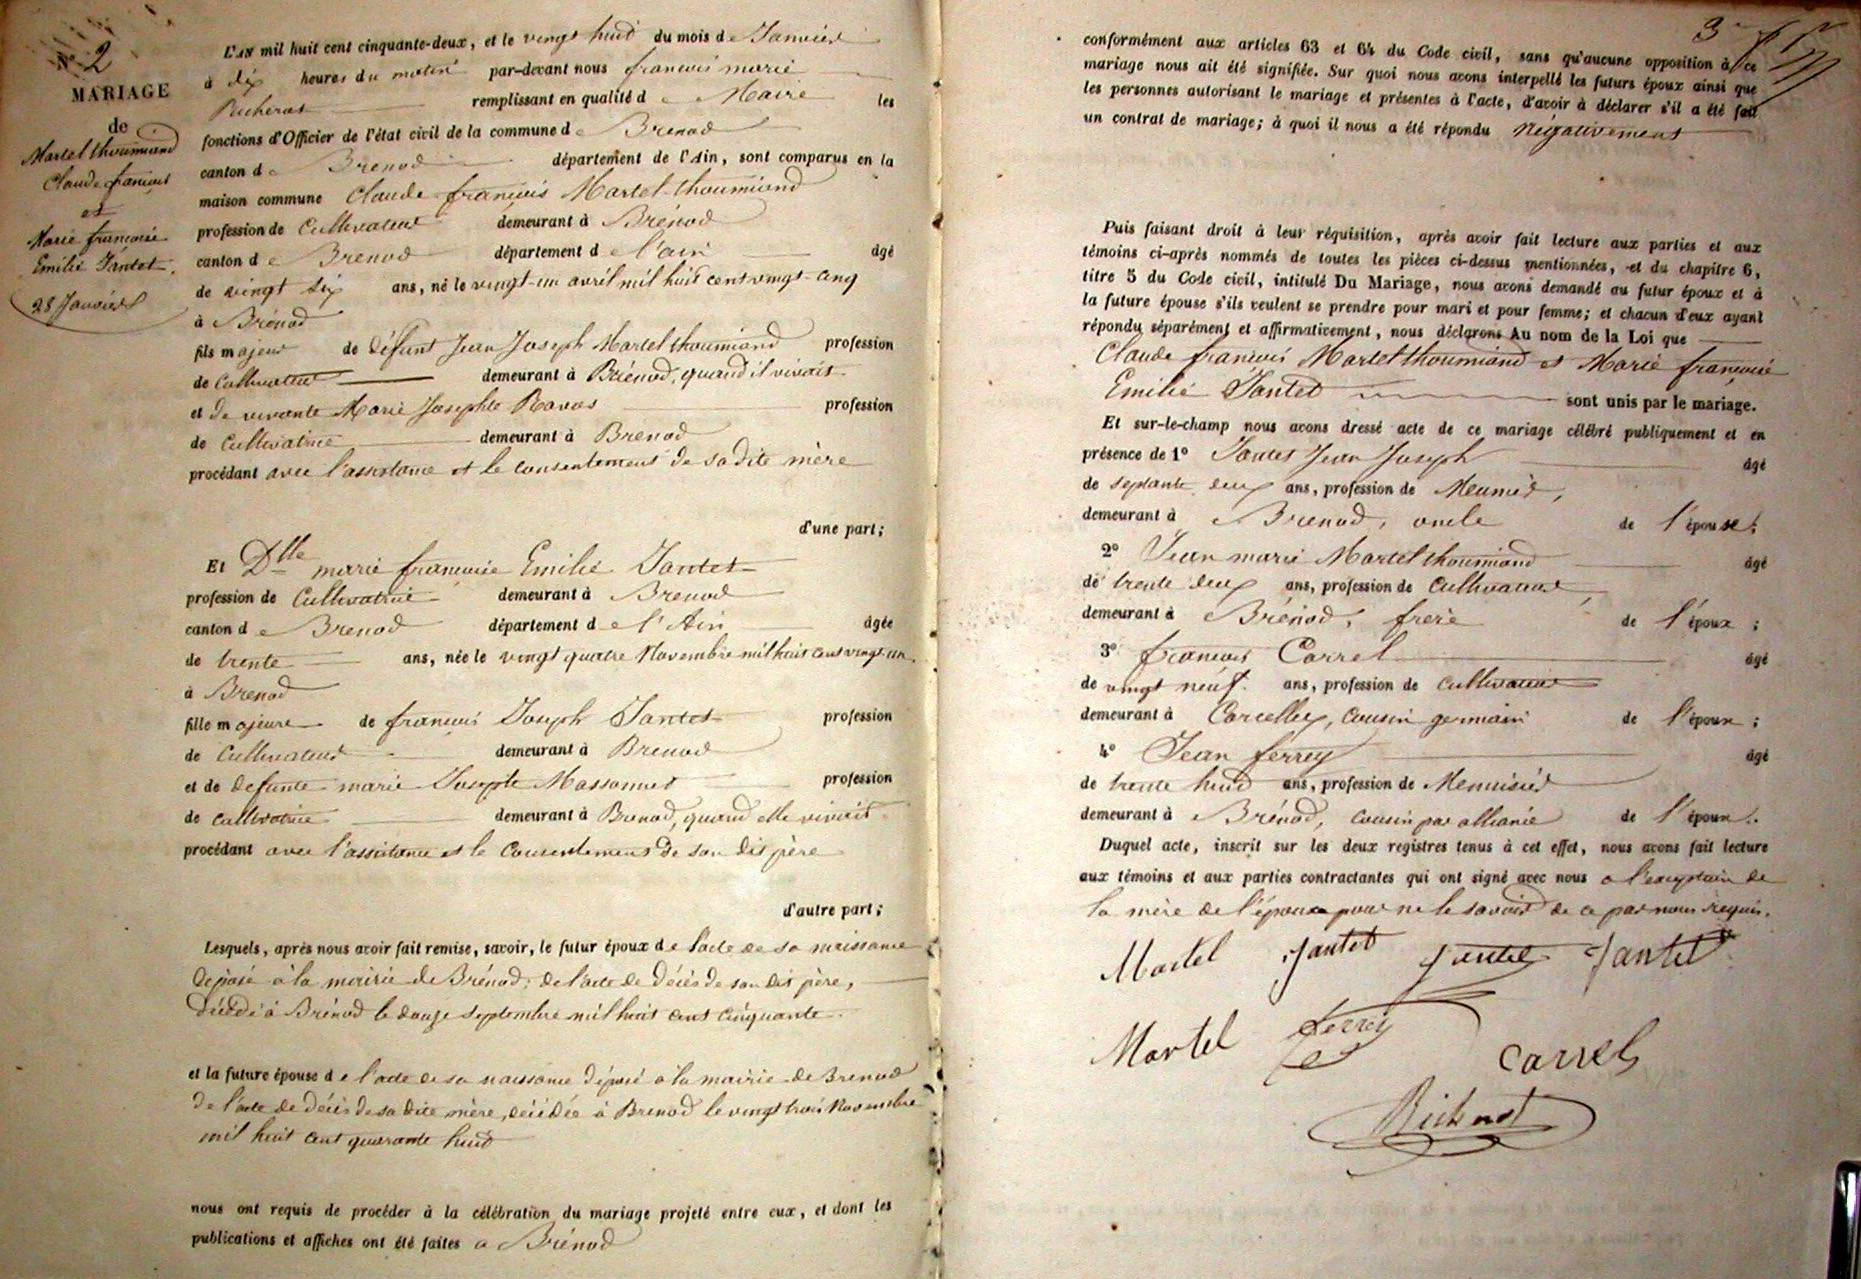 N° 2
MARIAGE
de
Martel thoumiand
Claude françois
et
Marie françoise
Emilie Jantet.
28 Janvier
L'AN mil huit cent cinquante-deux, et le vingt huit du mois de Janvier
à dix heures du matin par-devant nous françois marie
remplissant en qualité de Maire les
fonctions d'Officier de l'état civil de la commune de Brenod
canton de Brenod département de l'Ain, sont comparus en la
maison commune Claude françois Martel-thoumiand
profession de Cultivateur demeurant à Brénod
canton de Brenod département de l'ain âgé
de vingt six ans, né le vingt-un avril mil huit cent vingt-cinq
à Brénod
fils majeur de défunt Jean Joseph Martel thoumiand profession
de Cultivateur demeurant à Brénod, quand il vivait
et de vivante Marie Josephte Ravas profession
de Cultivatrice demeurant à Brenod
procédant avec l'assistance et le consentement de sa dite mère
d'une part;
Et Dlle marie françoise Emilie Jantet
profession de Cultivatrice demeurant à Brenod
canton de Brenod département de l'Ain âgée
de trente ans, née le vingt quatre Novembre mil huit cent vingt-un
à Brenod
fille majeure de françois Joseph Jantet profession
de Cultivateur demeurant à Brenod
et de defunte marie Josephte Massonnet profession
de cultivatrice demeurant à Brenod, quand elle vivait
procédant avec l'assistance et le Consentement de son dit père
d'autre part;
Lesquels, après nous avoir fait remise, savoir, le futur époux de l'acte de sa naissance
déposé à la mairie de Brénod; de l'acte de décès de son dit père,
décédé à Brénod le douze septembre mil huit cent cinquante.
et la future épouse de l'acte de sa naissance déposé à la mairie de Brenod
de l'acte de décès de sa dite mère, décédée à Brenod le vingt trois Novembre
mil huit cent quarante huit
nous ont requis de procéder à la célébration du mariage projeté entre eux, et dont les
publications et affiches ont été faites à Brénod
3
conformément aux articles 63 et 64 du Code civil, sans qu'aucune opposition à ce
mariage nous ait été signifiée. Sur quoi nous avons interpellé les futurs époux ainsi que
les personnes autorisant le mariage et présentes à l'acte, d'avoir à déclarer s'il a été fait
un contrat de mariage; à quoi il nous a été répondu négativement
Puis faisant droit à leur réquisition, après avoir fait lecture aux parties et aux
témoins ci-après nommés de toutes les pièces ci-dessus mentionnées, et du chapitre 6,
titre 5 du Code civil, intitulé Du Mariage, nous avons demandé au futur époux et à
la future épouse s'ils veulent se prendre pour mari et pour femme; et chacun d'eux ayant
répondu séparément et affirmativement, nous déclarons Au nom de la Loi que
Claude françois Martel thoumiand et Marie françoise
Emilie Jantet sont unis par le mariage.
Et sur-le-champ nous avons dressé acte de ce mariage célébré publiquement et en
présence de 1° Jantet Jean Joseph âgé
de septante deux ans, profession de Meunier,
demeurant à Brenod, oncle de l'épouse;
2° Jean marie Martel thoumiand âgé
de trente deux ans, profession de Cultivateur,
demeurant à Brénod, frère de l'époux;
3° françois Carrel âgé
de vingt neuf ans, profession de Cultivateur
demeurant à Corcelles, cousin germain de l'époux;
4° Jean ferrey âgé
de trente huit ans, profession de Menuisier
demeurant à Brénod, cousin par alliance de l'époux.
Duquel acte, inscrit sur les deux registres tenus à cet effet, nous avons fait lecture
aux témoins et aux parties contractantes qui ont signé avec nous a l'exception de
la mère de l'époux pour ne le savoir de ce par nous requis.
Martel Jantet Jantet Jantet
Martel ferrey
Carrel